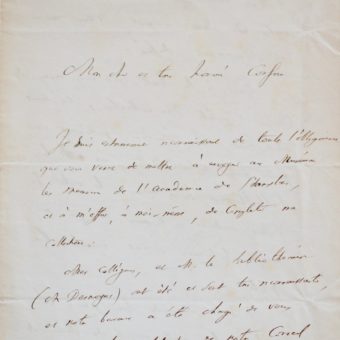 Mon cher et très honoré Confrère
Je suis extrêmement reconnaissant de toute l'obligeance
que vous venez de mettre à envoyer au Muséum
les mémoires de l'Académie de
et à m'offrir, à moi-même, de compléter ma
collection.
Mes collègues, et M. le bibliothécaire
(M. Desnoyers) ont été et sont très reconnaissants,
et notre bureau a été chargé de vous
de notre Conseil